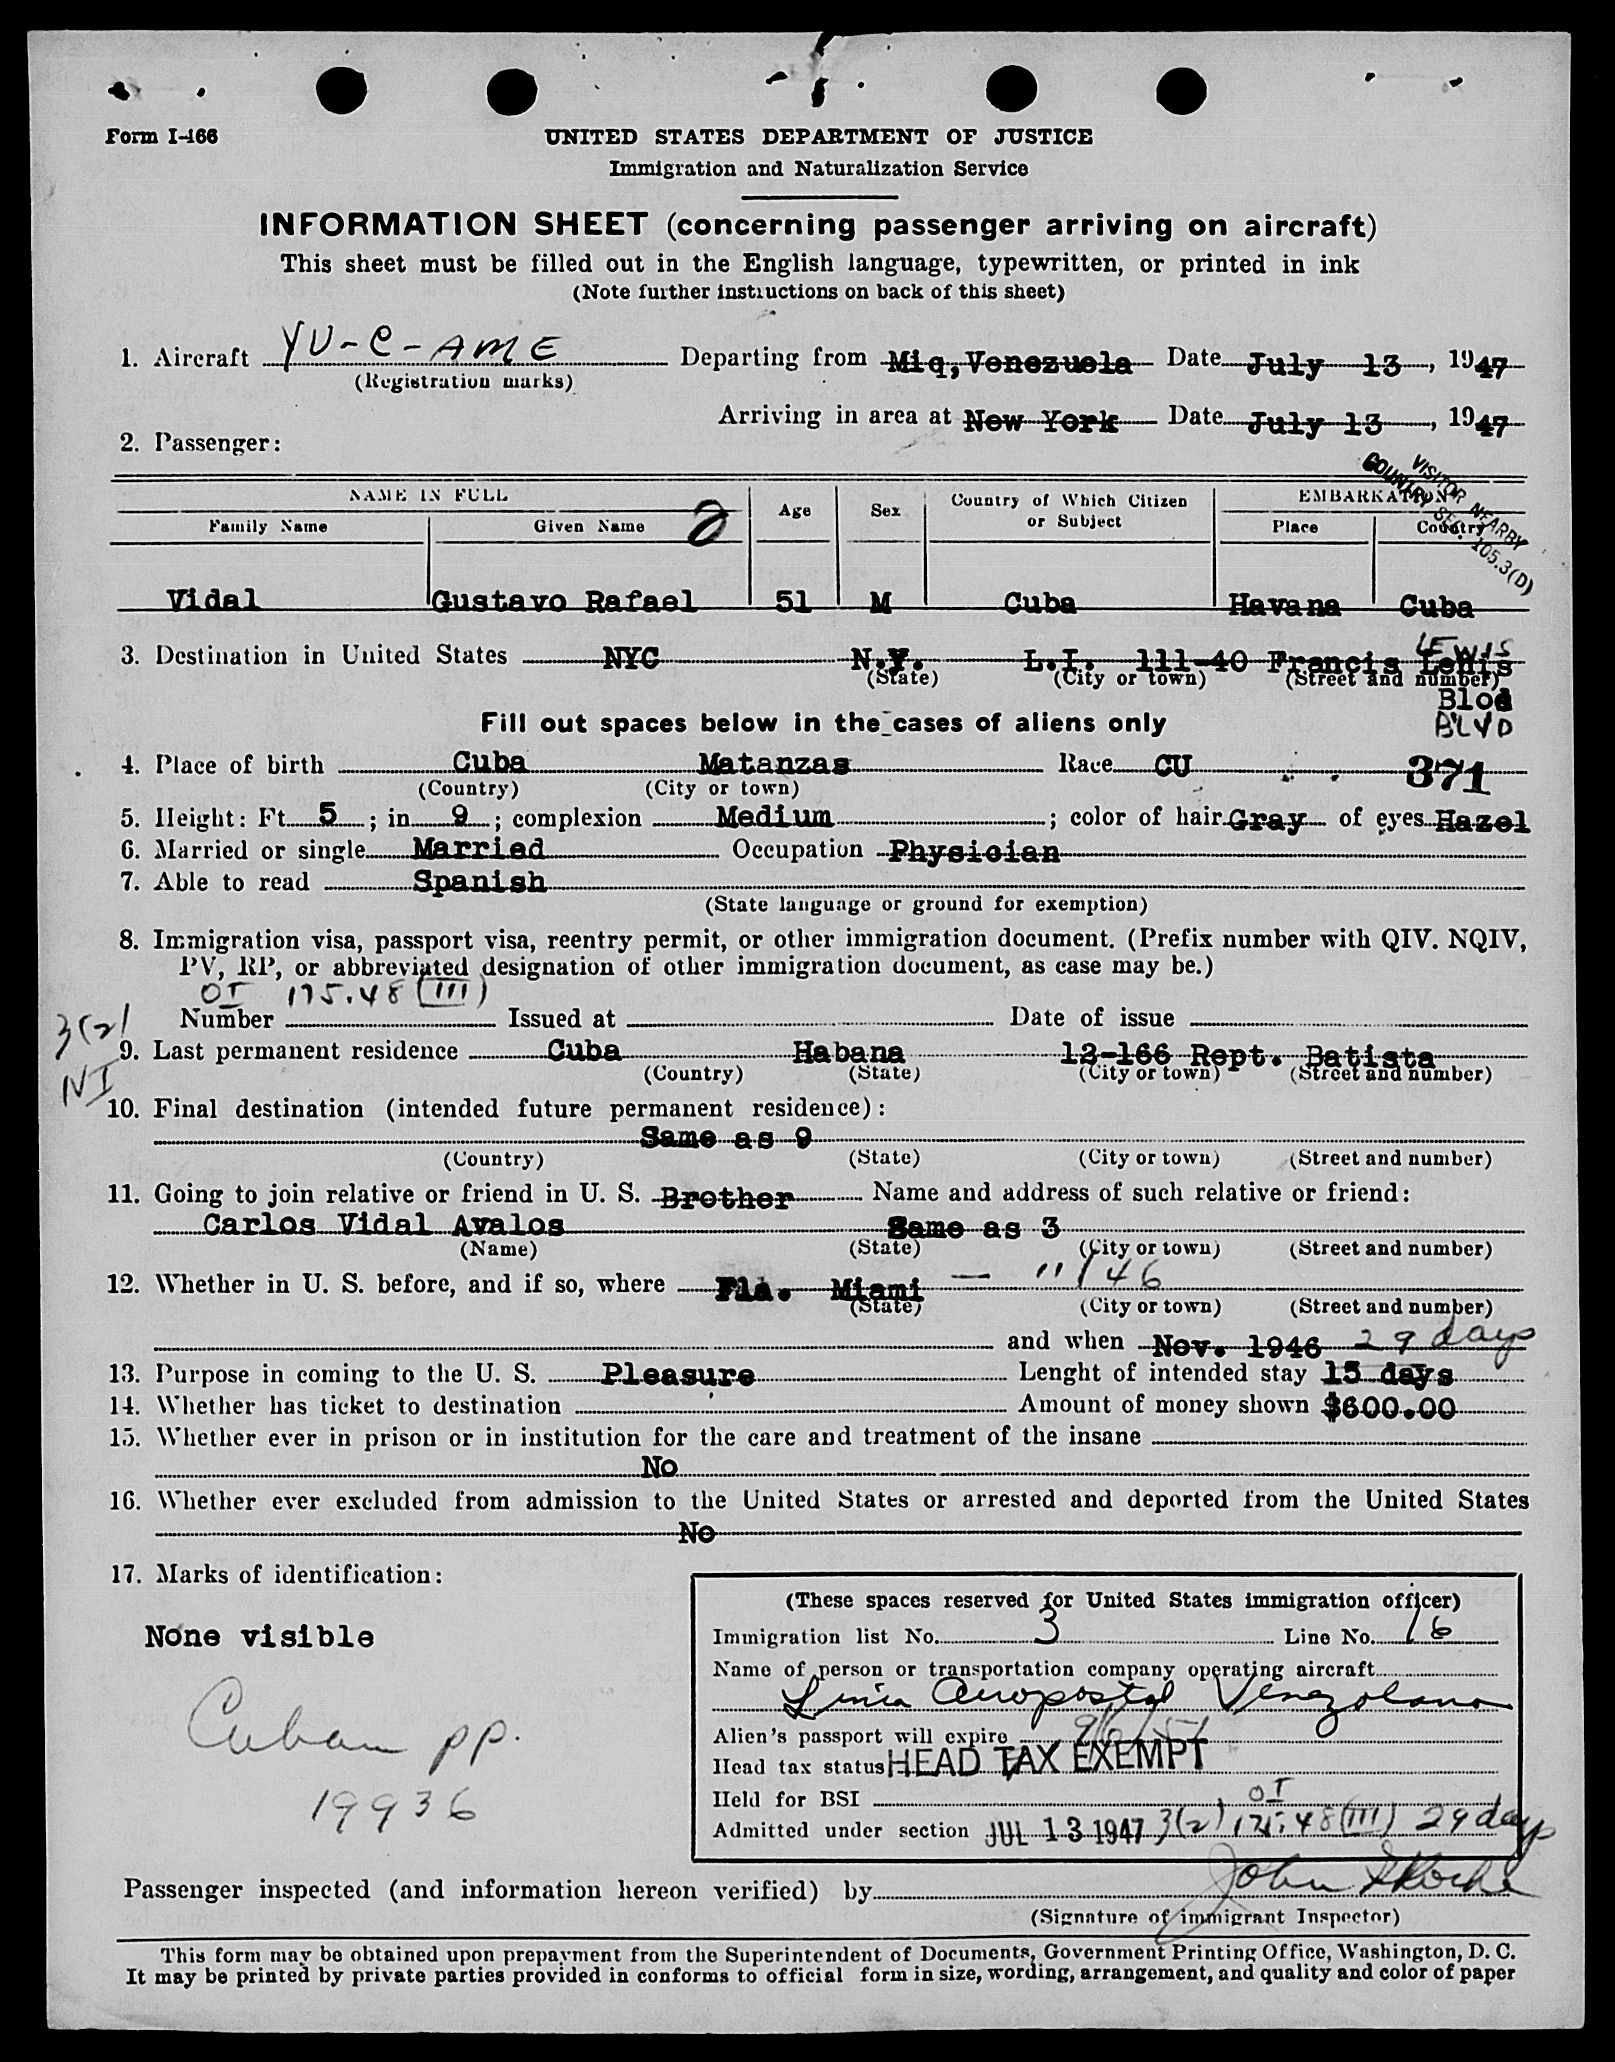 Form I-466
UNITED STATES DEPARTMENT OF JUSTICE
Immigration and Naturalization Service
INFORMATION SHEET (concerning passenger arriving on aircraft)
This sheet must be filled out in the English language, typewritten, or printed in ink
(Note further instructions on back of this sheet)
1. Aircraft YU-C-AME Departing from Miq, Venezuela Date July 13, 1947
(Registration marks)
Arriving in area at New York Date July 13, 1947
2. Passenger:
VISITOR NEARBY
COUNTRY SEC. 105.3(D)
NAME IN FULL Age Sex Country of Which Citizen or Subject EMBARKATION
Family Name Given Name Place Country
Vidal Gustavo Rafael 51 M Cuba Havana Cuba
LEWIS
3. Destination in United States NYC N.Y. L.I. 111-40 Francis Lenis
(State) (City or town) (Street and number)
Blod
Fill out spaces below in the cases of aliens only BLVD
4. Place of birth Cuba Matanzas Race CU 371
(Country) (City or town)
5. Height: Ft. 5; in. 9; complexion Medium; color of hair Gray of eyes Hazel
6. Married or single Married Occupation Physician
7. Able to read Spanish
(State language or ground for exemption)
8. Immigration visa, passport visa, reentry permit, or other immigration document. (Prefix number with QIV. NQIV,
PV, RP, or abbreviated designation of other immigration document, as case may be.)
OI 175.48 (III)
Number Issued at Date of issue
3(2)
9. Last permanent residence Cuba Habana 12-166 Rept. Batista
(Country) (State) (City or town) (Street and number)
NI
10. Final destination (intended future permanent residence):
Same as 9
(Country) (State) (City or town) (Street and number)
11. Going to join relative or friend in U. S. Brother Name and address of such relative or friend:
Carlos Vidal Avalos Same as 3
(Name) (State) (City or town) (Street and number)
12. Whether in U. S. before, and if so, where Fla. Miami - 11/46
(State) (City or town) (Street and number)
and when Nov. 1946 29 days
13. Purpose in coming to the U. S. Pleasure Lenght of intended stay 15 days
14. Whether has ticket to destination Amount of money shown $600.00
15. Whether ever in prison or in institution for the care and treatment of the insane
No
16. Whether ever excluded from admission to the United States or arrested and deported from the United States
No
17. Marks of identification:
None visible
Cuban pp.
19936
(These spaces reserved for United States immigration officer)
Immigration list No. 3 Line No. 16
Name of person or transportation company operating aircraft
Linia Aeropostal Venezolana
Alien's passport will expire
Head tax status HEAD TAX EXEMPT
Held for BSI
OI
Admitted under section JUL 13 1947 3(2) 175.48(III) 29 days
Passenger inspected (and information hereon verified) by John
(Signature of immigrant Inspector)
This form may be obtained upon prepayment from the Superintendent of Documents, Government Printing Office, Washington, D. C.
It may be printed by private parties provided in conforms to official form in size, wording, arrangement, and quality and color of paper